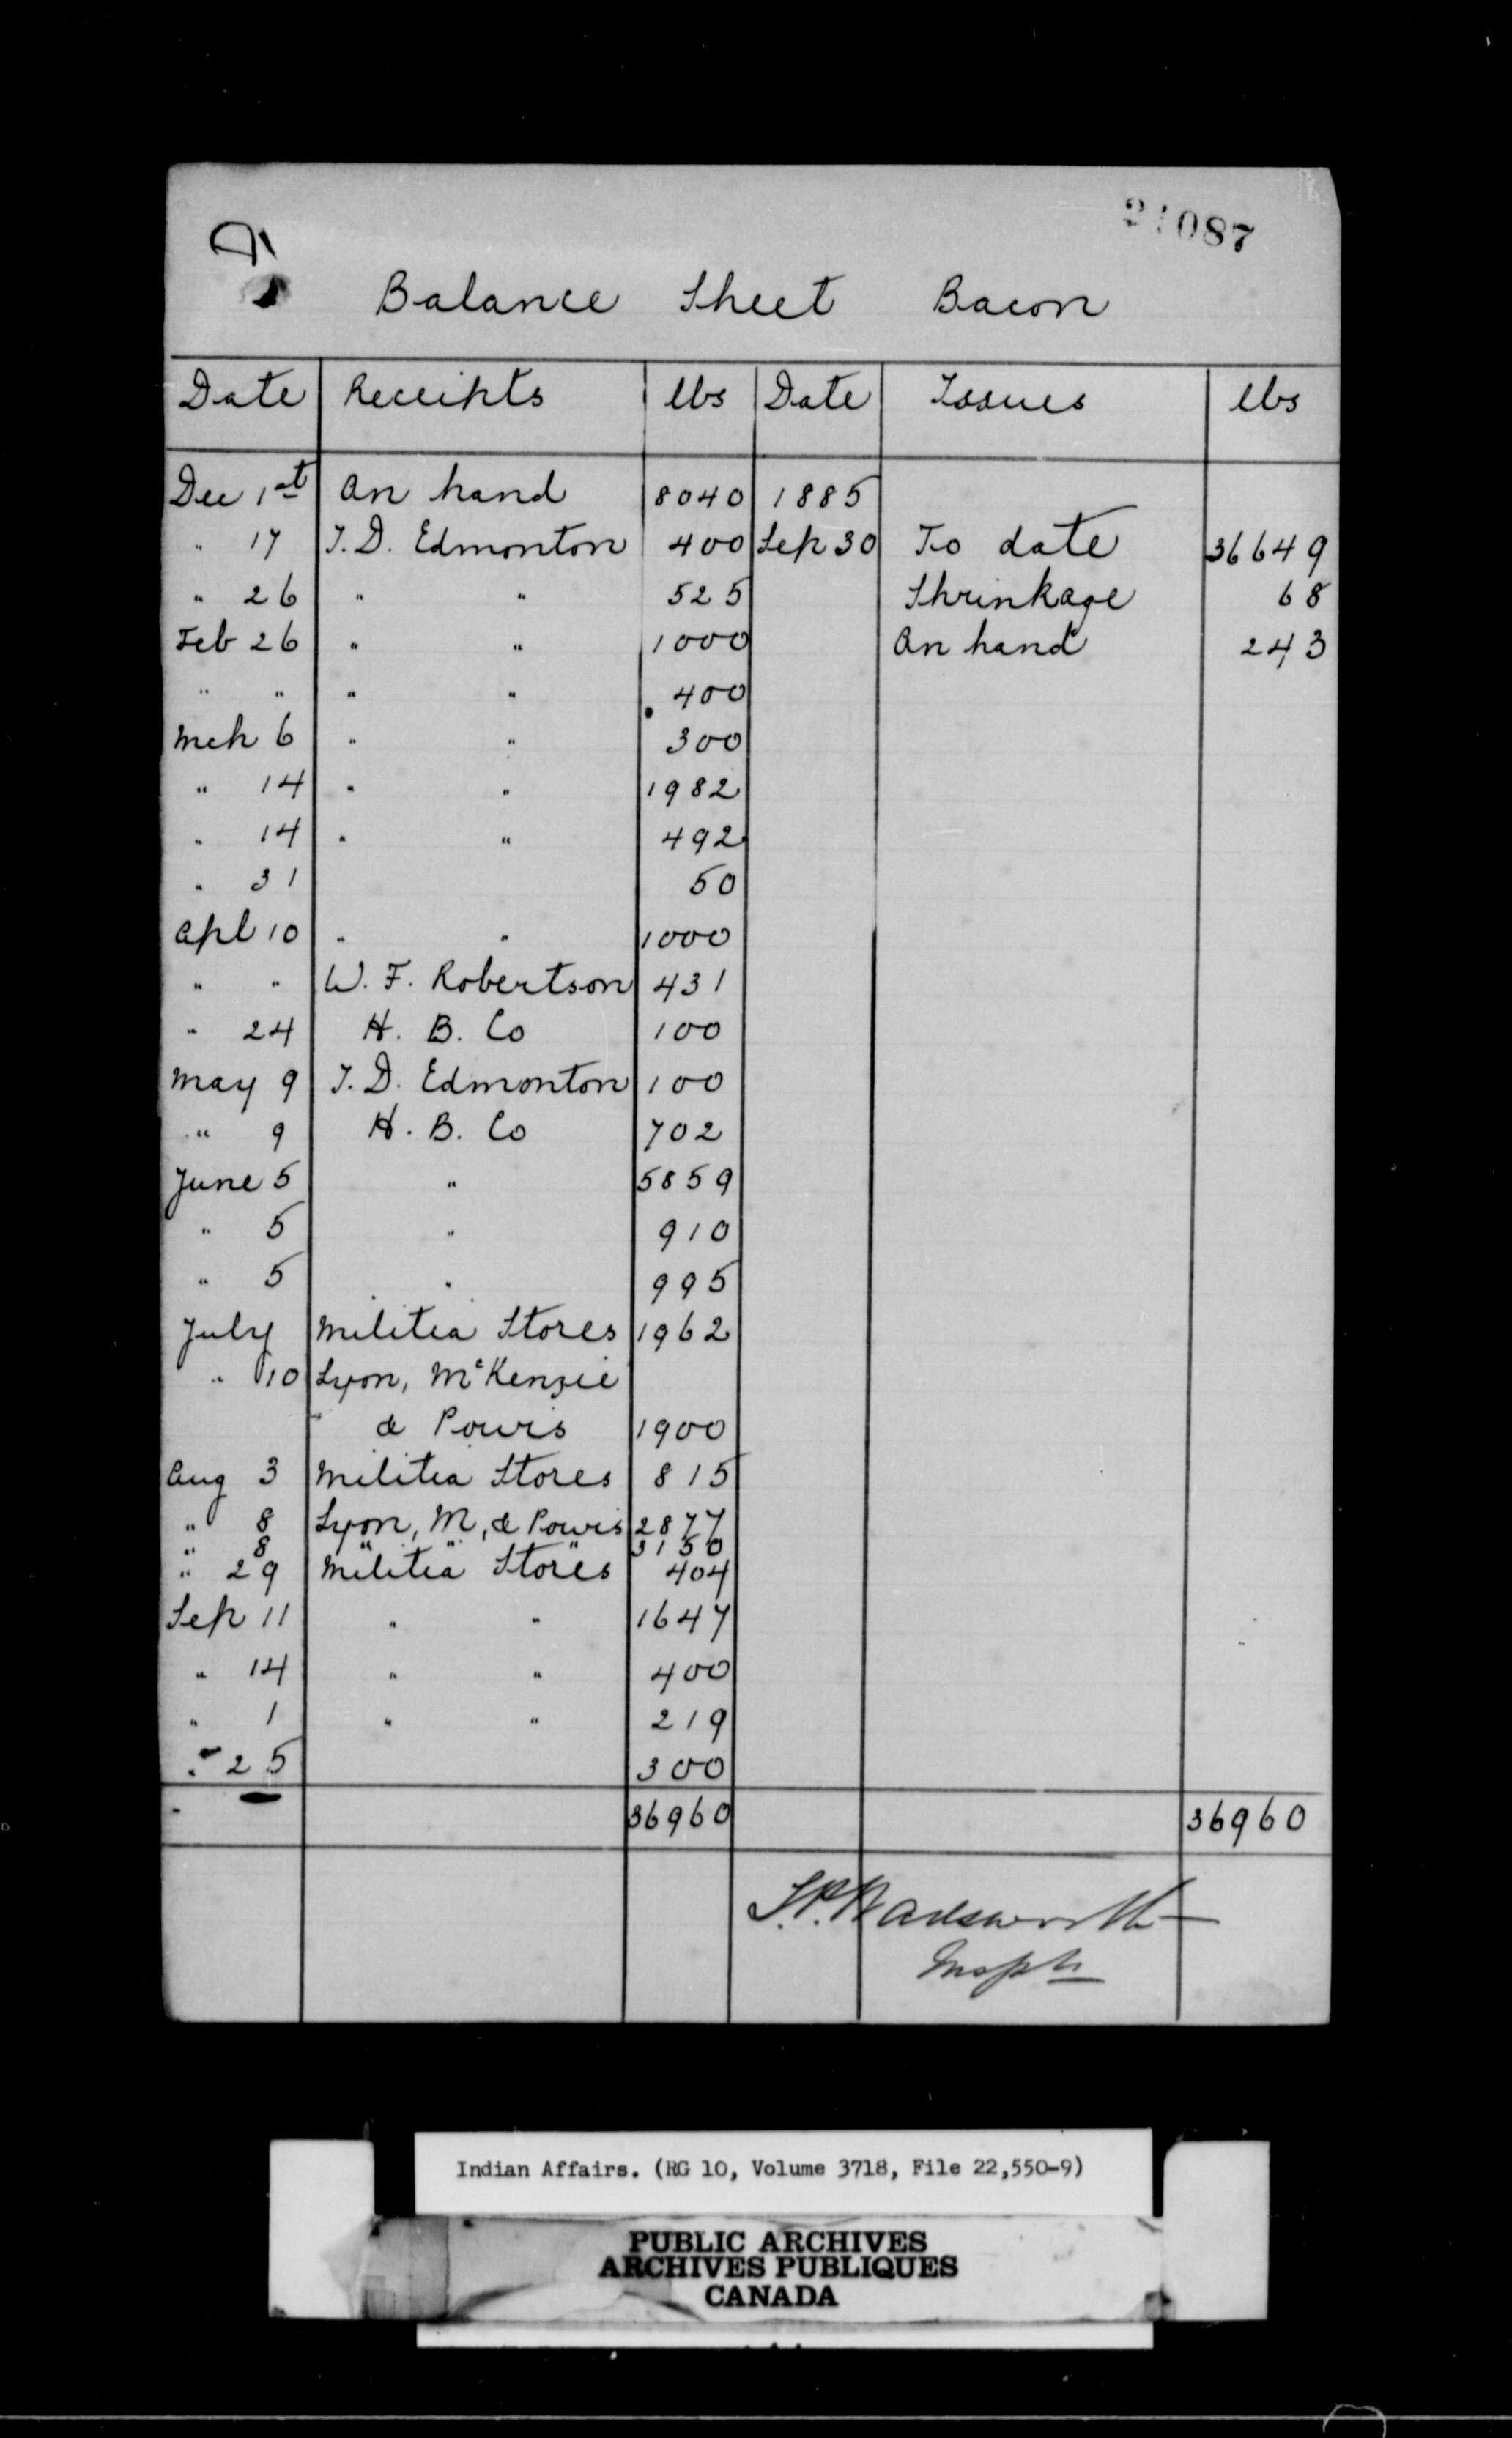 21087
Balance Sheet Bacon
Date Receipts lbs Date Issues lbs
Dec 1st On hand 8040 1885
" 17 I.D. Edmonton 400 Sep 30 To date 36649
" 26 " " 525 Shrinkage 68
Feb 26 " " 1000 On hand 243
" " " " 400
Mch 6 " " 300
" 14 " " 1982
" 14 " " 492
" 31 50
Apl 10 " " 1000
" " W. F. Robertson 431
" 24 H. B. Co 100
May 9 I.D. Edmonton 100
" 9 H. B. Co 702
June 5 " 5859
" 5 " 910
" 5 " 995
July Militia Stores 1962
" 10 Lyon, McKenzie
& Powis 1900
Aug 3 Militia Stores 815
" 8 Lyon, M, & Powis 2877
" 8 " " " 3150
" 29 Militia Stores 404
Sep 11 " " 1647
" 14 " " 400
" 1 " " 219
" 25 300
36960 36960
T.P. Wadsworth
Inspr
Indian Affairs. (RG 10, Volume 3718, File 22,550-9)
PUBLIC ARCHIVES
ARCHIVES PUBLIQUES
CANADA